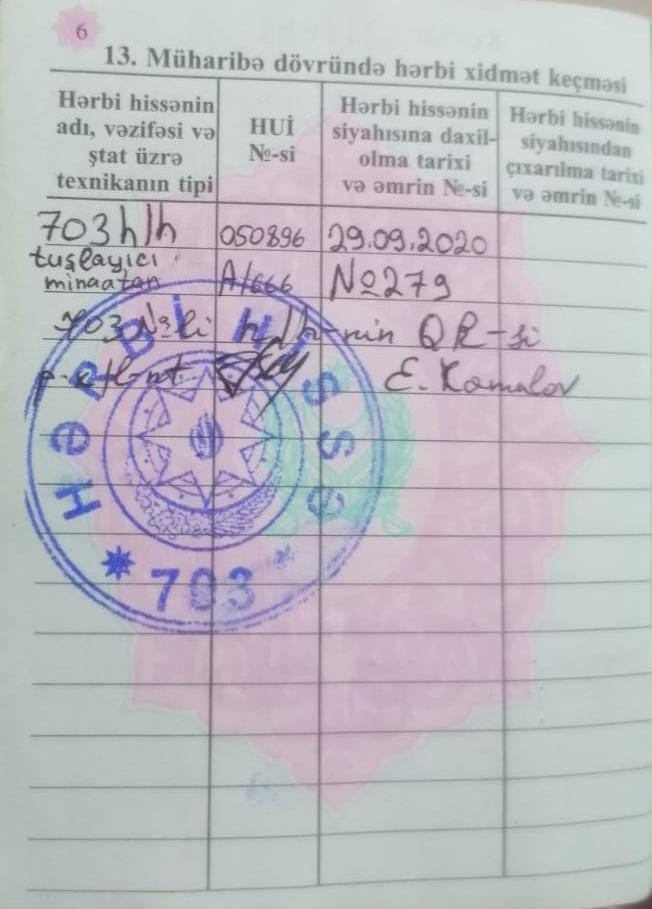 6
13. Müharibə dövründə hərbi xidmət keçməsi
Hərbi hissənin
adı, vəzifəsi və
ştat üzrə
texnikanın tipi
HUİ
№-si
Hərbi hissənin
siyahısına daxil-
olma tarixi
və əmrin №-si
Hərbi hissənin
siyahısından
çıxarılma tarixi
və əmrin №-si
703 h/h 050896 29.09.2020
tuşlayıcı
minaatan A/666 №279
703 №li h/h-nin QR-si
E. Kamalov
HƏRBİ HİSSƏ
703